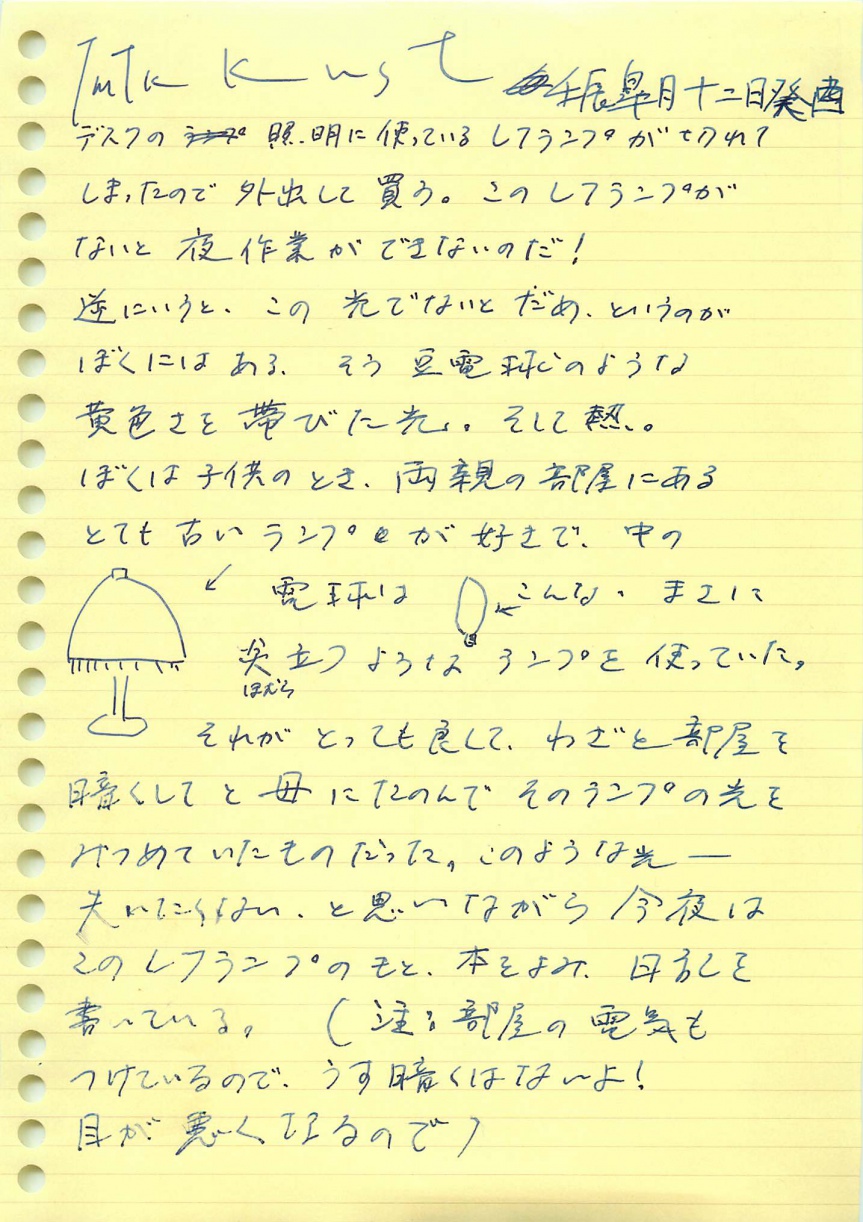 壬辰皐月十二日癸酉
デスクの 照明に使っているレフランプが切れて
しまったので外出して買う。このレフランプが
ないと夜作業ができないのだ!
逆にいうと、この光でないとだめ、というのが
ぼくにはある。そう豆電球のような
黄色さを帯びた光。そして熱。
ぼくは子供のとき、両親の部屋にある
とても古いランプが好きで、中の
電球は こんな。まさに
炎立つようなランプを使っていた。
ほむら
それがとっても良くて、わざと部屋を
暗くしてと母にたのんでそのランプの光を
みつめていたものだった。このような光―
失いたくない、と思いながら今夜は
このレフランプのもと、本をよみ、日記を
書いている。(注:部屋の電気も
つけているので、うす暗くはないよ!
目が悪くなるので)